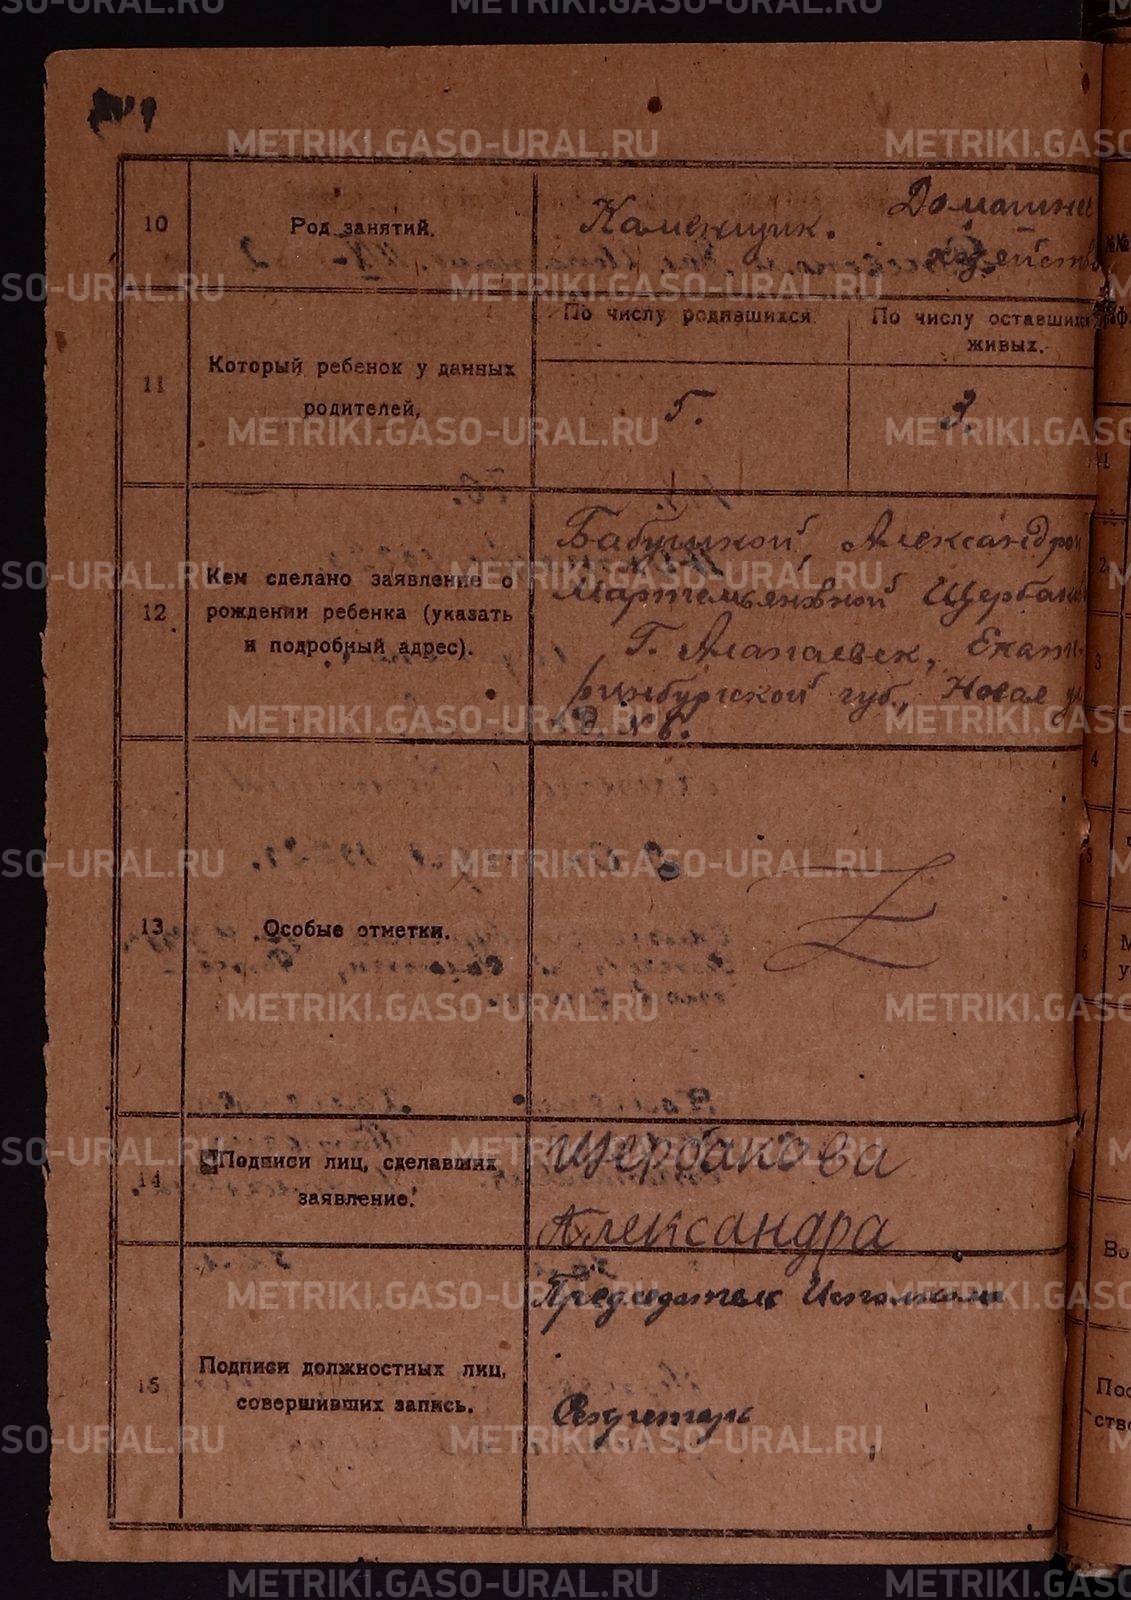 10
Род занятий.
Каменщик.
Домашнее
хозяйство
11
Который ребенок у данных
родителей,
По числу родившихся
По числу оставшихся
живых.
5.
3.
12
Кем сделано заявление о
рождении ребенка (указать
и подробный адрес).
Бабушкой, Александрой
Мартемьянвной Щербаковой
Г. Алапаевск, Екате-
ринбургской губ., Новая ул
д. № 6.
13
Особые отметки.
Z
14
Подписи лиц, сделавших
заявление.
Щербакова
Александра
15
Подписи должностных лиц,
совершивших запись.
Председатель Исполкома
Секретарь
METRIKI.GASO-URAL.RU